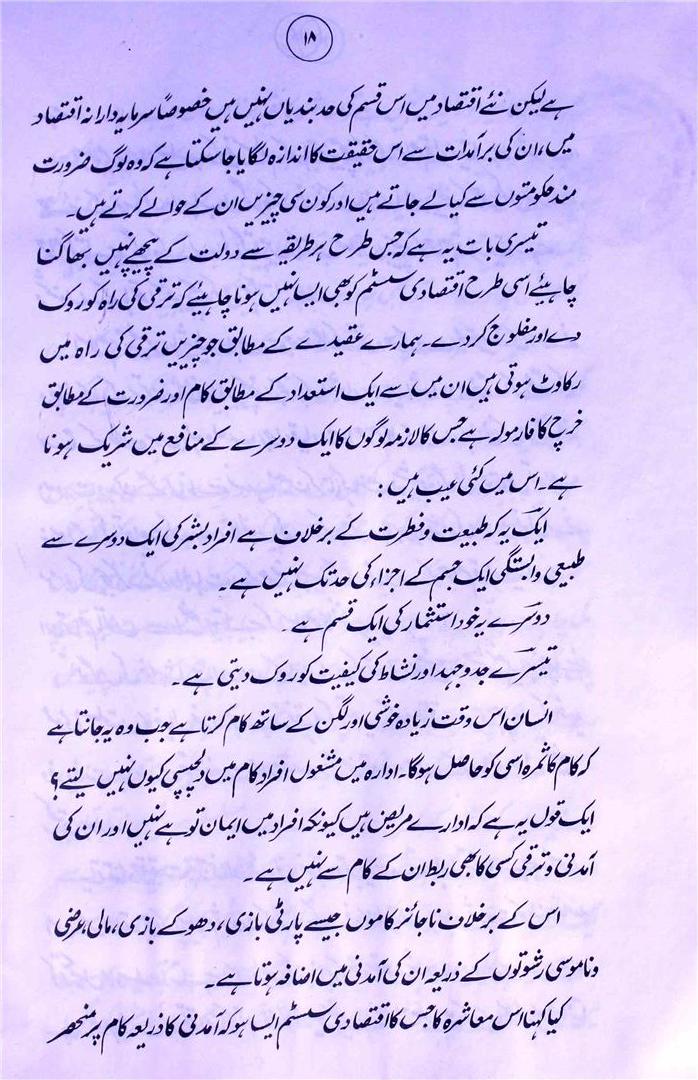 ۱۸
ہے لیکن نئے اقتصاد میں اس قسم کی حد بندیاں نہیں ہیں خصوصاً سرمایہ دارانہ اقتصاد
میں، ان کی برآمدات سے اس حقیقت کا اندازہ لگایا جا سکتا ہے کہ وہ لوگ ضرورت
مند حکومتوں سے کیا لے جاتے ہیں اور کون سی چیزیں ان کے حوالے کرتے ہیں۔
تیسری بات یہ ہے کہ جس طرح ہر طریقہ سے دولت کے پیچھے نہیں بھاگنا
چاہیئے اسی طرح اقتصادی سسٹم کو بھی ایسا نہیں ہونا چاہیئے کہ ترقی کی راہ کو روک
دے اور مفلوج کر دے۔ ہمارے عقیدے کے مطابق جو چیزیں ترقی کی راہ میں
رکاوٹ ہوتی ہیں ان میں سے ایک استعداد کے مطابق کام اور ضرورت کے مطابق
خرچ کا فارمولہ ہے جس کا لازمہ لوگوں کا ایک دوسرے کے منافع میں شریک ہونا
ہے۔ اس میں کئی عیب ہیں :
ایک یہ کہ طبیعت و فطرت کے برخلاف ہے افراد بشر کی ایک دوسرے سے
طبیعی وابستگی ایک جسم کے اجزاء کی حد تک نہیں ہے۔
دوسرے یہ خود استثمار کی ایک قسم ہے۔
تیسرے جد و جہد اور نشاط کی کیفیت کو روک دیتی ہے۔
انسان اس وقت زیادہ خوشی اور لگن کے ساتھ کام کرتا ہے جب وہ یہ جانتا ہے
کہ کام کا ثمرہ اسی کو حاصل ہوگا۔ ادارہ میں مشغول افراد کام میں دلچسپی کیوں نہیں لیتے؟
ایک قول یہ ہے کہ ادارے مریض ہیں کیونکہ افراد میں ایمان تو ہے نہیں اور ان کی
آمدنی و ترقی کسی کا بھی ربط ان کے کام سے نہیں ہے۔
اس کے برخلاف ناجائز کاموں جیسے پارٹی بازی، دھوکے بازی، مالی، عرضی
و ناموسی رشوتوں کے ذریعہ ان کی آمدنی میں اضافہ ہوتا ہے۔
کیا کہنا اس معاشرہ کا جس کا اقتصادی سسٹم ایسا ہو کہ آمدنی کا ذریعہ کام پر منحصر